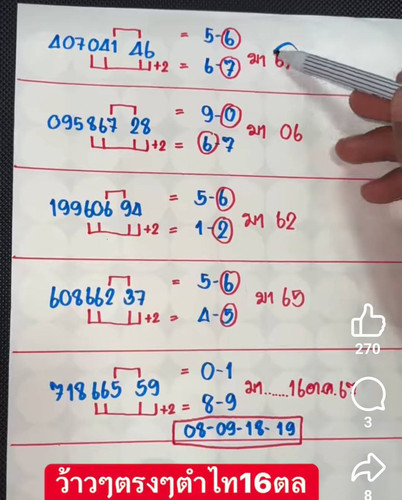 407041 46 = 5-6
+2 = 6-7 มา 6
095867 28 = 9-0
+2 = 6-7 มา 06
199606 94 = 5-6
+2 = 1-2 มา 62
608662 37 = 5-6
+2 = 4-5 มา 65
718665 59 = 0-1
+2 = 8-9 มา.......16ต.ค.67
08-09-18-19
270
3
8
ว้าวๆตรงๆตำไท16ตล